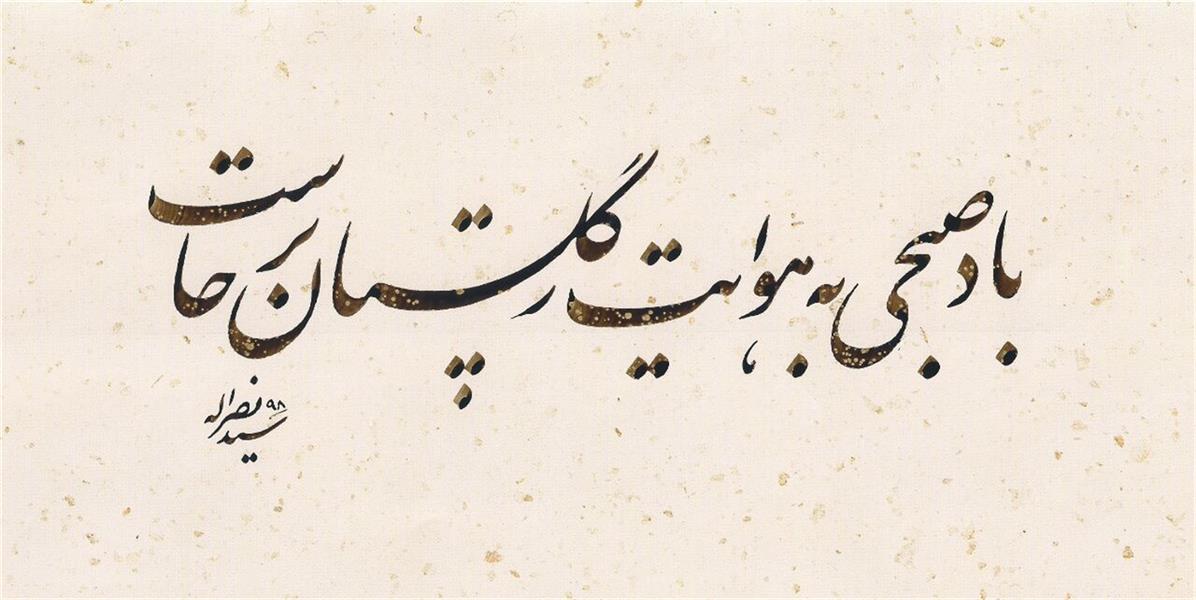 باد صبحی به هوایت ز گلستان برخاست
سید نصراله ۹۸